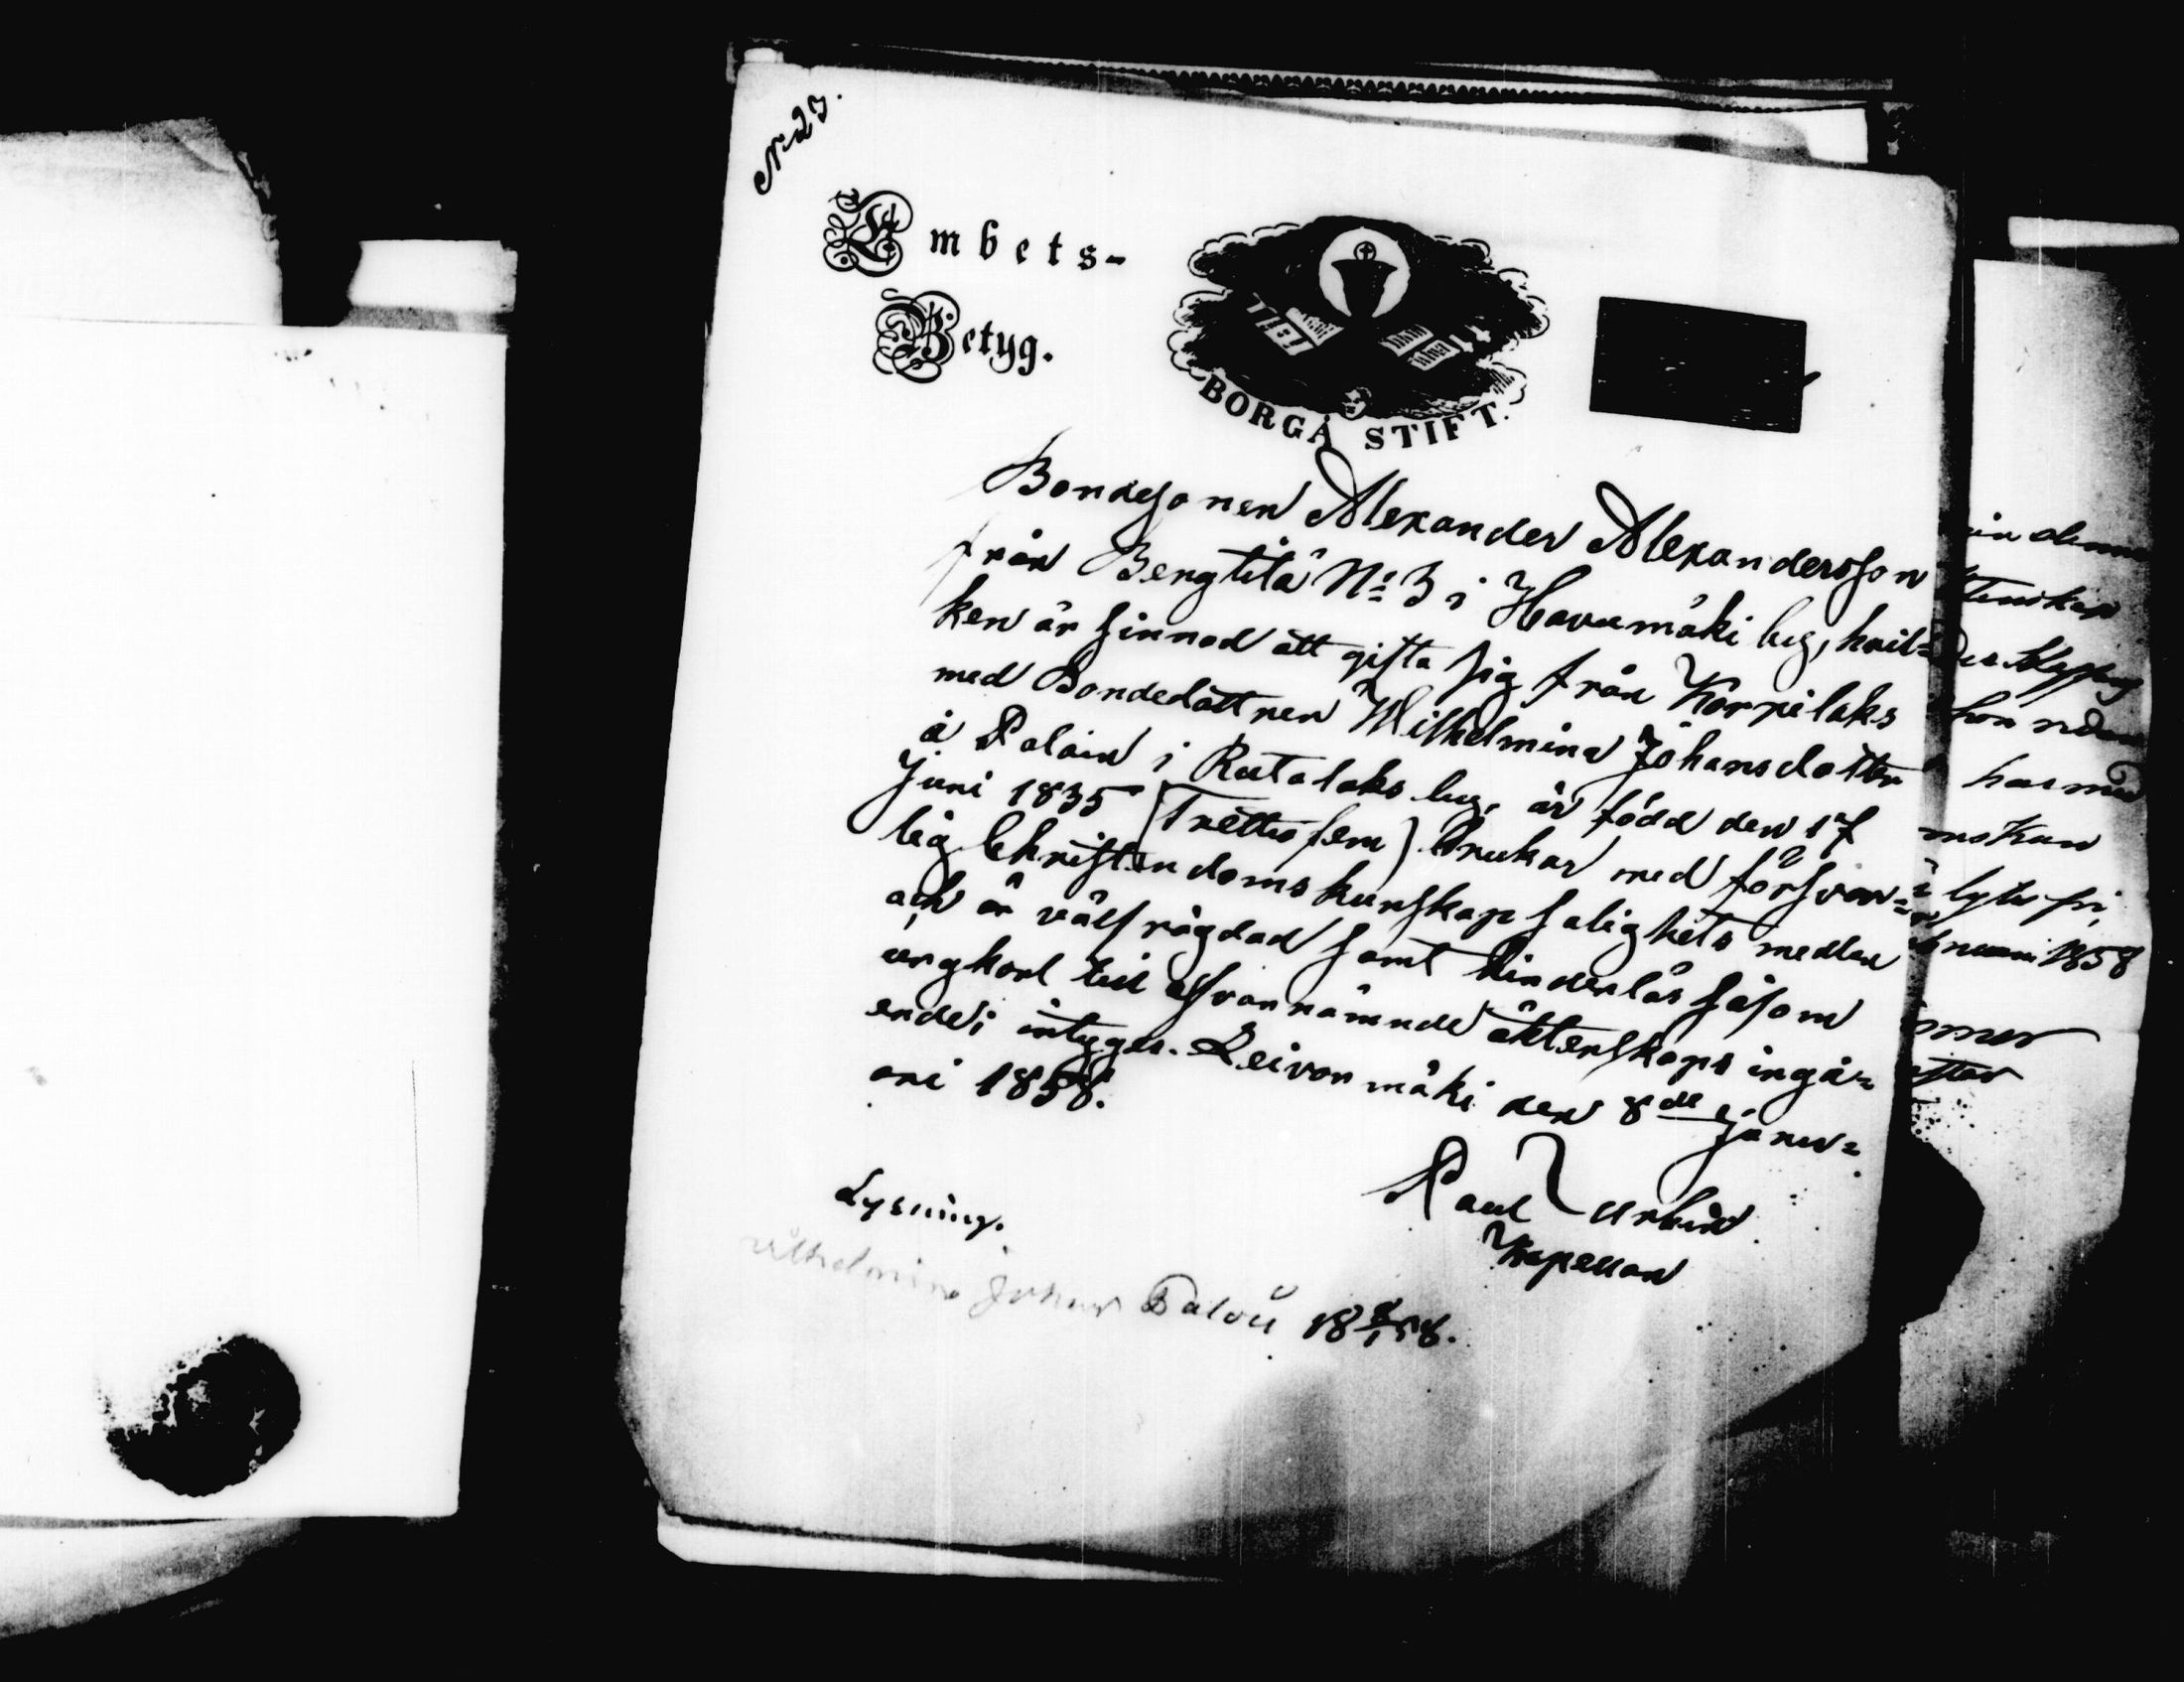 N 23.
Embets-
Betyg.
BORGÅ STIFT.
Bondesonen Alexander Alexandersson
från Bengtilä No 3 i Havumäki by, hvil=
ken är sinnad att gifta sig från Korpilaks
med Bondedottren Wilhelmina Johansdotter
å Paloin i Rutalaks by, är född den 17
Juni 1835 (Trettiofem) brukar med försvar=
lig Christendomskunskap salighets medlen
och är välfrägdad samt hinderlös såsom
ungkarl till ofvannämnde äktenskaps ingå=
ende; intygas. Leivonmäki den 8de Janu=
ari 1858.
Paul
Kapellan
Lysning.
Vilhelmina Johans Paloii 18 8/1 58.
in denna
hon
har med
lyte fri,
1858